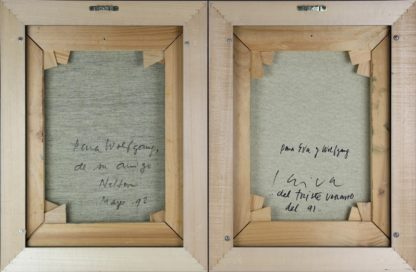 Para Wolfgang,
de su amigo
Nelson
Mayo 92
para Eva y Wolfgang
del triste verano
del 91.